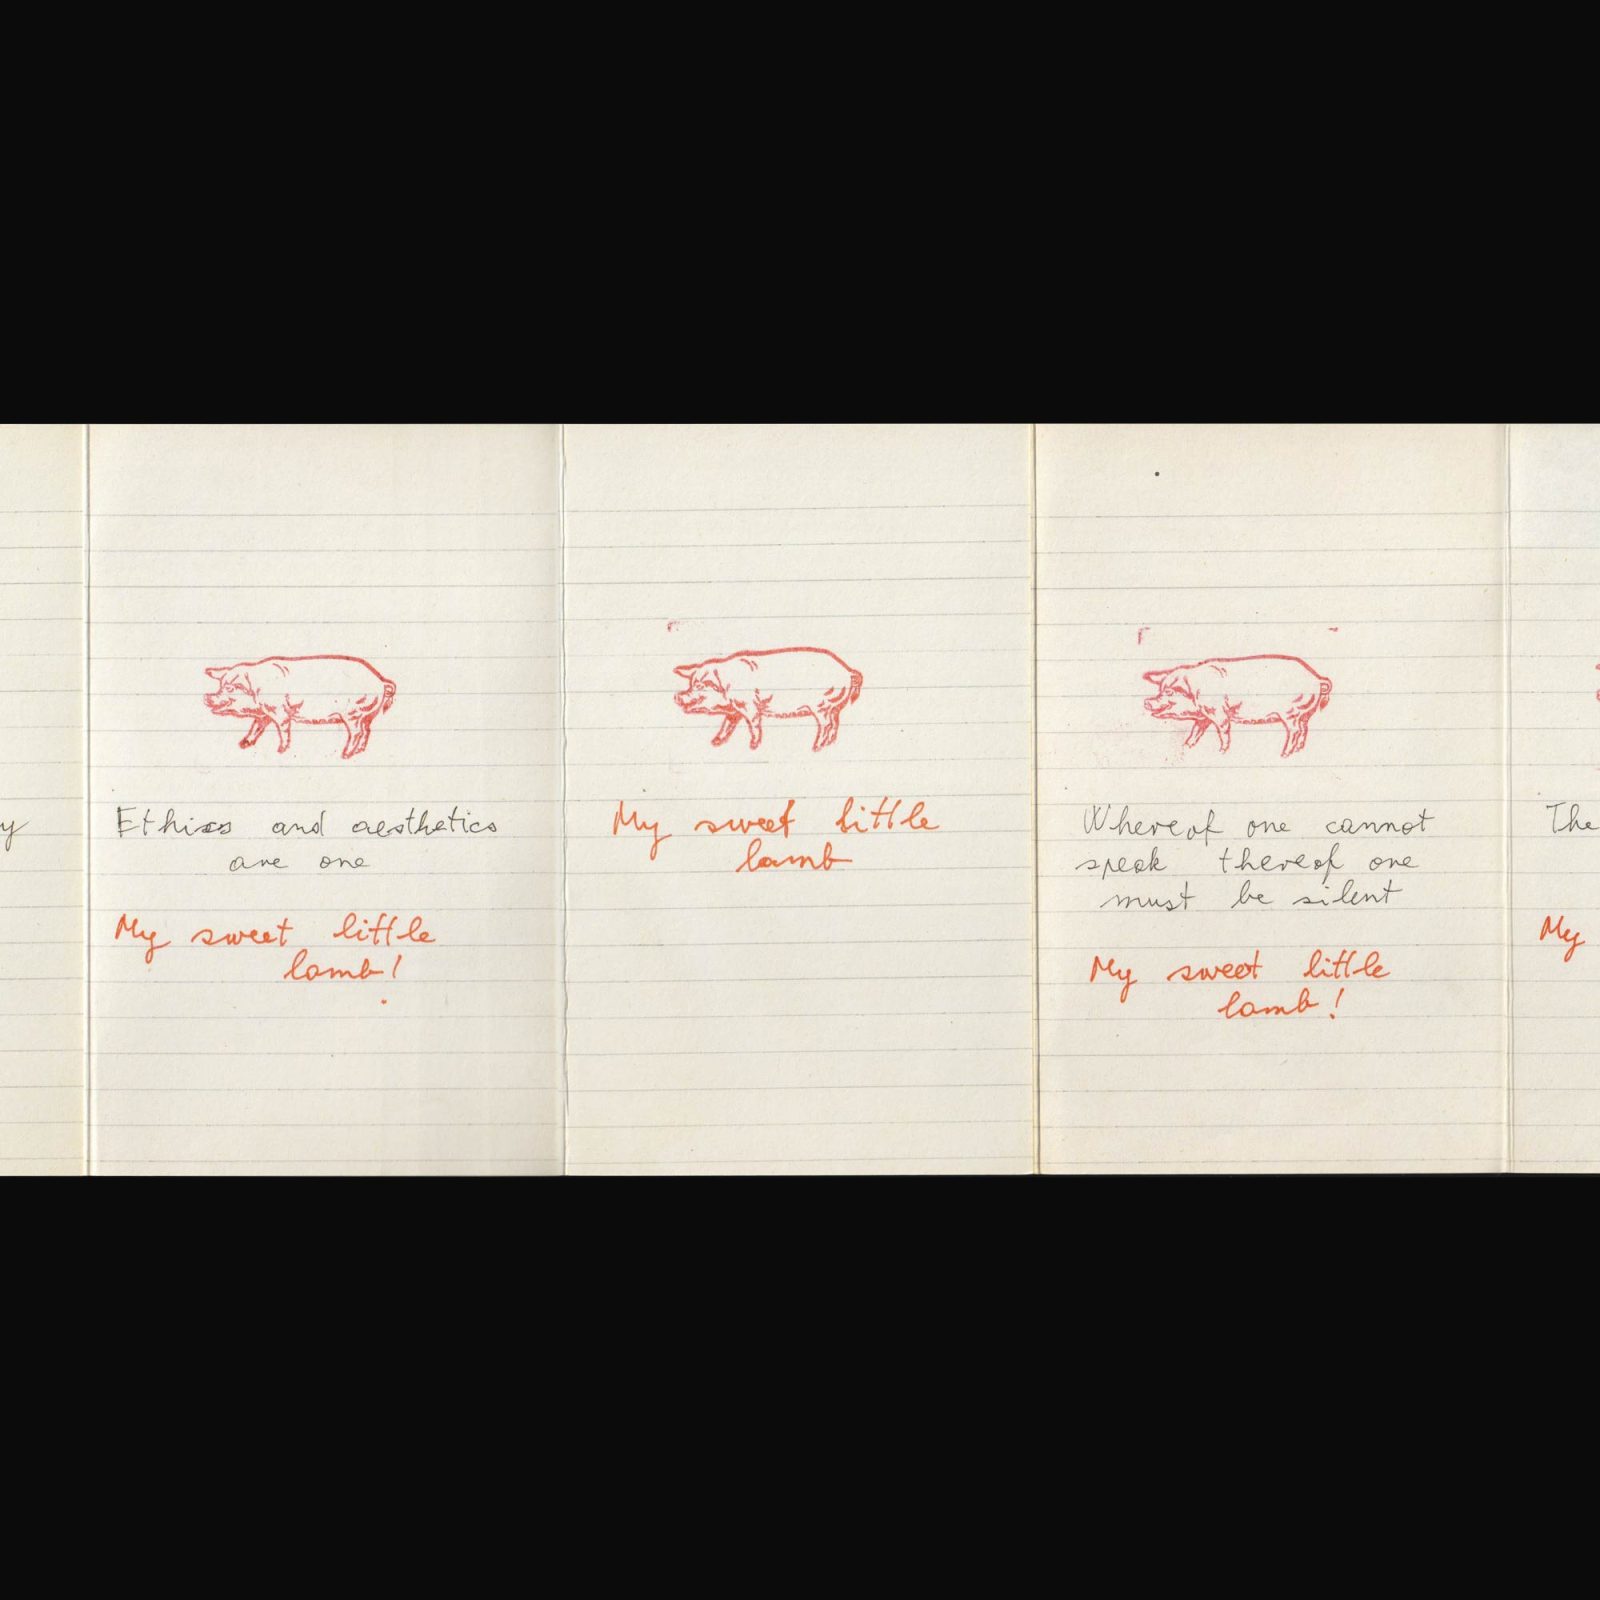 y
Ethics and aesthetics
are one
My sweet little
lamb!
My sweet little
lamb
Whereof one cannot
speak thereof one
must be silent
My sweet little
lamb!
The
My